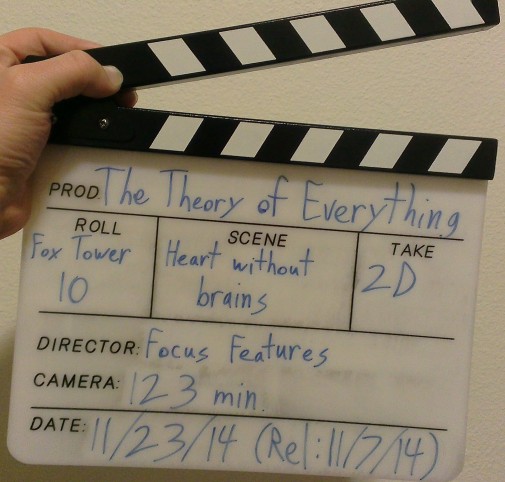 PROD. The Theory of Everything
ROLL
Fox Tower
10
SCENE
Heart without
brains
TAKE
2D
DIRECTOR: Focus Features
CAMERA: 123 min.
DATE: 11/23/14 (Rel: 11/7/14)